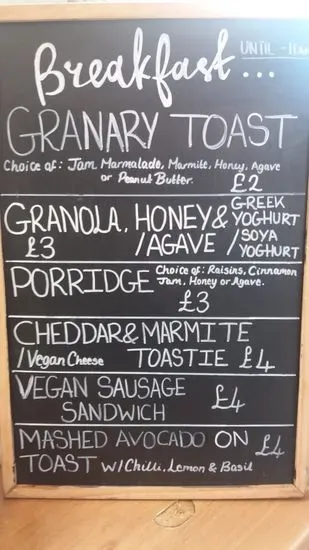 Breakfast... UNTIL - 11am
GRANARY TOAST
Choice of: Jam, Marmalade, Marmite, Honey, Agave
or Peanut Butter. £2
GRANOLA, HONEY & GREEK YOGHURT
£3 /AGAVE /SOYA YOGHURT
PORRIDGE Choice of: Raisins, Cinnamon
Jam, Honey or Agave.
£3
CHEDDAR & MARMITE
/Vegan Cheese TOASTIE £4
VEGAN SAUSAGE £4
SANDWICH
MASHED AVOCADO ON £4
TOAST W/ Chilli, Lemon & Basil